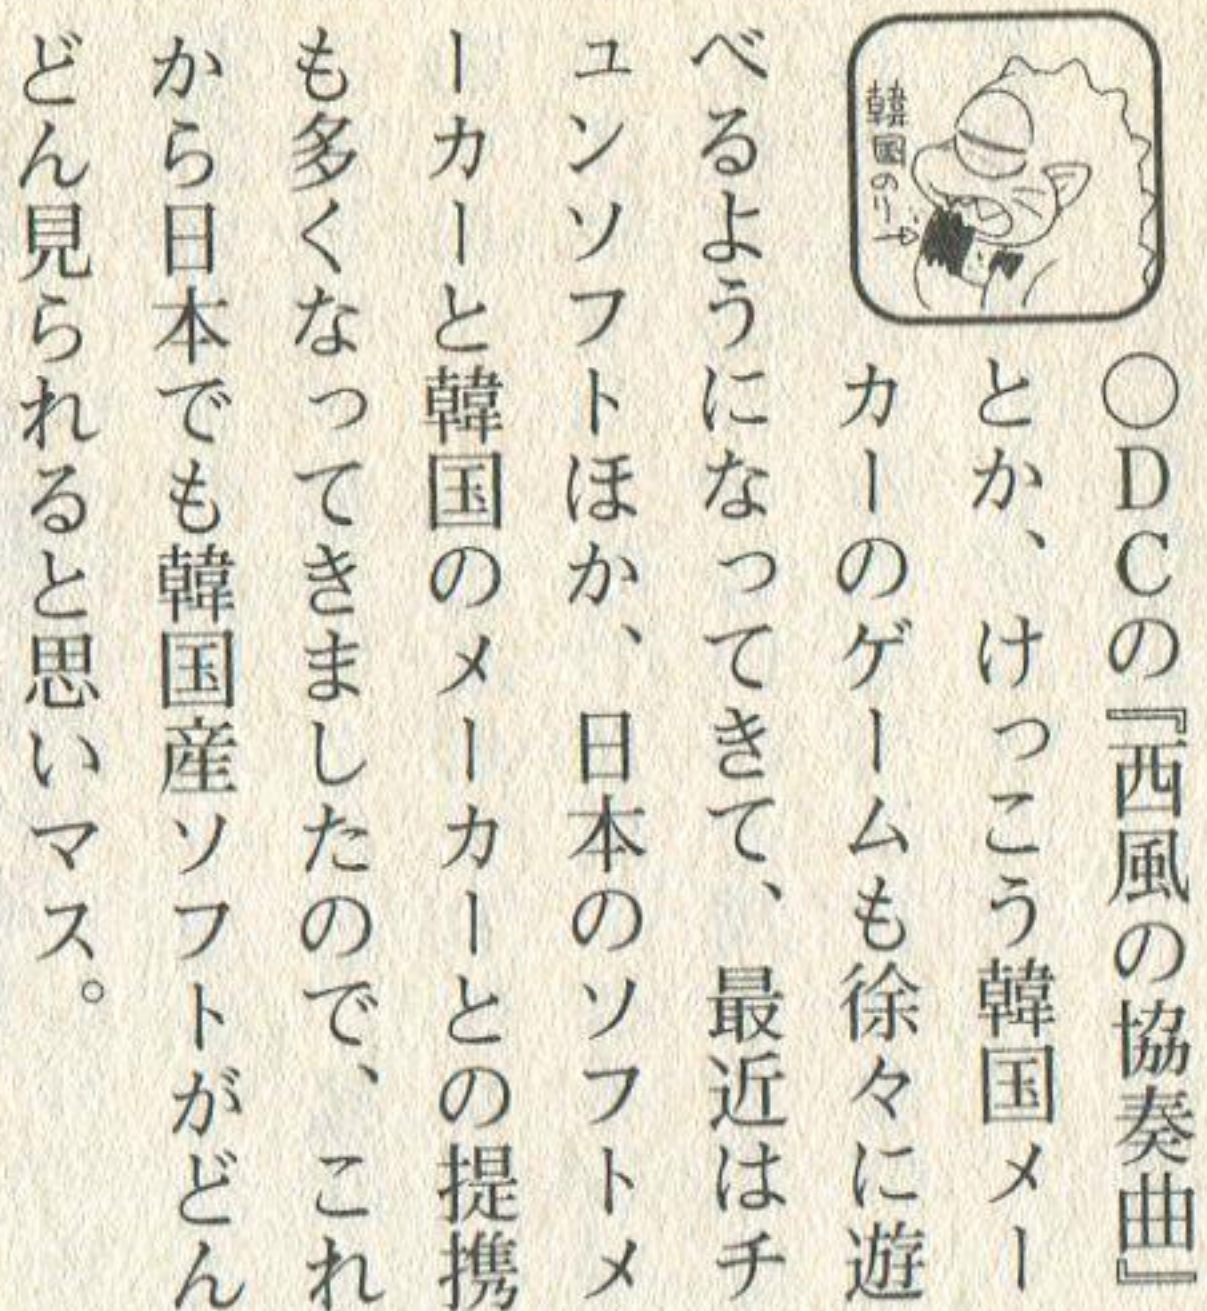 韓國のり→
○DCの『西風の協奏曲』
とか、けっこう韓国メー
カーのゲームも徐々に遊
べるようになってきて、最近はチ
ュンソフトほか、日本のソフトメ
ーカーと韓国のメーカーとの提携
も多くなってきましたので、これ
から日本でも韓国産ソフトがどん
どん見られると思いマス。